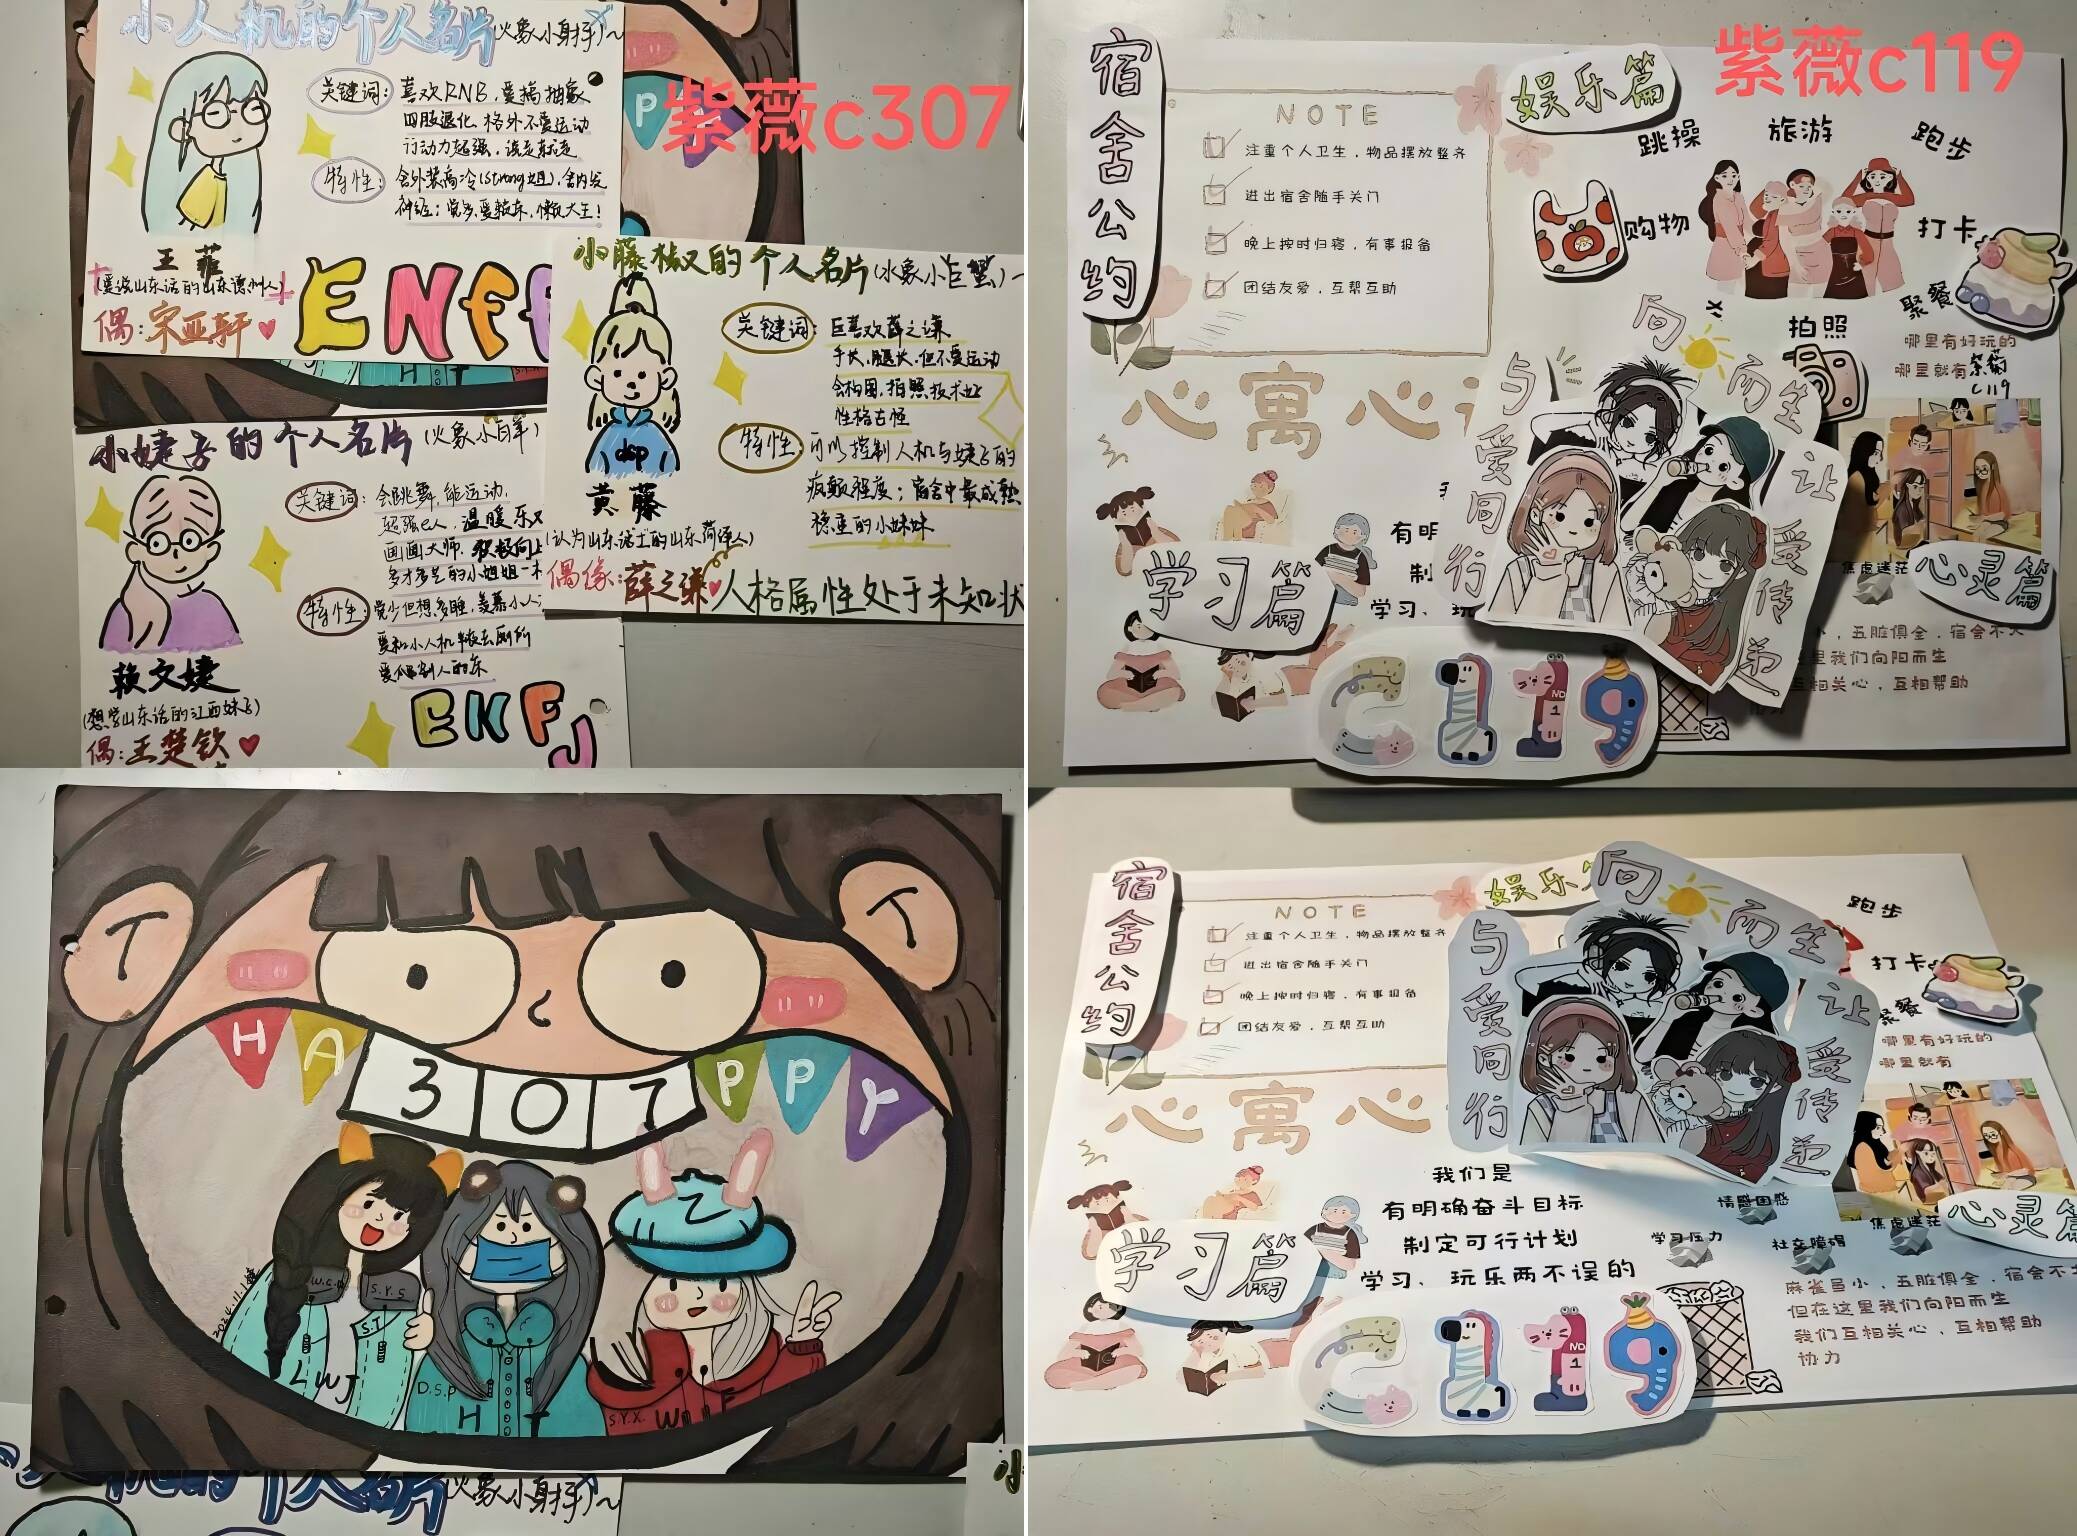 小人机的个人名片(火象小射手)~
关键词:
喜欢RNB、爱搞抽象
四肢退化、格外不爱运动
行动力超强、说走就走
特性:
舍外装高冷(strong姐)，舍内发
神经；觉少，爱躺床，懒大王！
王菲
(爱说山东话的山东德州人)
偶:宋亚轩
ENF
P
紫薇c307
小藤椒的个人名片(水象小巨蟹)
关键词:
巨喜欢薛之谦
手长、腿长、但不爱运动
会构图、拍照技术好
性格古怪
特性:
可以控制人机与婕子的
疯癫程度；宿舍中最成熟
稳重的小妹妹
dsp
黄藤
(认为山东话土的山东菏泽人)
偶像:薛之谦
人格属性处于未知状
小婕子的个人名片(火象小白羊)
关键词:
会跳舞、能运动、
超强e人、温暖乐观
画画大师、积极向上
多才多艺的小姐姐一枚
特性:
觉少但想多睡，羡慕小人
爱和小人机半夜去厕所
赖文婕
(想学山东话的江西妹子)
偶:王楚钦
ENFJ
紫薇c119
宿舍公约
NOTE
注重个人卫生，物品摆放整齐
进出宿舍随手关门
晚上按时归寝，有事报备
团结友爱，互帮互助
娱乐篇
跳操
旅游
跑步
购物
打卡
拍照
聚餐
哪里有好玩的
哪里就有紫薇
C119
心寓心
向而生
与爱同行
让爱传递
有明
制
学习、玩
学习篇
焦虑迷茫
心灵篇
小，五脏俱全，宿舍不大
这里我们向阳而生
互相关心，互相帮助
C119
T
T
HA
307
PPY
Z
W.C.Q
S.Y.S.
S.T
LWJ
D.S.P
HT
S.Y.X.
WF
2024.11.
个人名片(火象小射手)~
小
宿舍公约
NOTE
注重个人卫生，物品摆放整齐
进出宿舍随手关门
晚上按时归寝，有事报备
团结友爱，互帮互助
娱乐
向而生
与爱同行
让爱传递
跑步
打卡
聚餐
哪里有好玩的
哪里就有
心寓心
我们是
有明确奋斗目标
制定可行计划
学习、玩乐两不误的
学习篇
情感困惑
学习压力
社交障碍
焦虑迷茫
心灵篇
麻雀虽小，五脏俱全，宿舍不大
但在这里我们向阳而生
我们互相关心，互相帮助
协力
C119